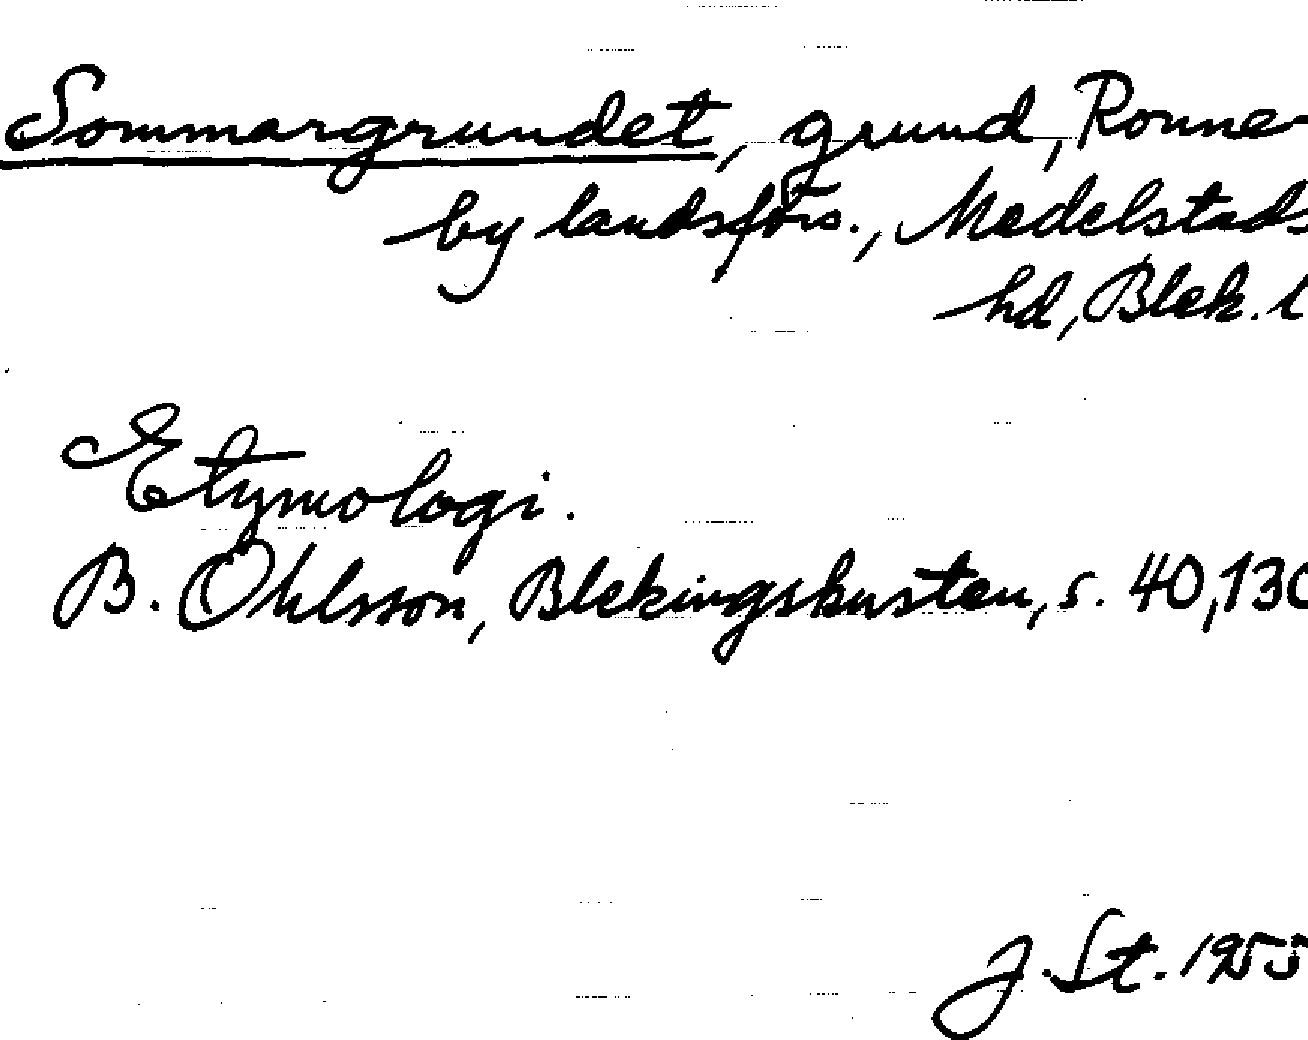 Sommargrundet, grund, Ronne-
by landsförs., Medelstads
hd, Blek. l
Etymologi.
B. Ohlsson, Blekingskusten, s. 40, 130
J. St. 1955